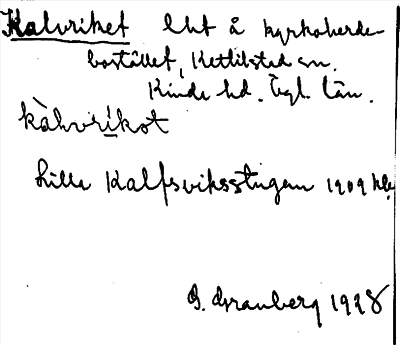 Kalvriket lht å kyrkoherde-
bostället, Kettilstad sn.
Kinda hd. Ögl. län.
kàhvrikot
lilla Kalfsviksstugan 1909
G. Granberg 1928